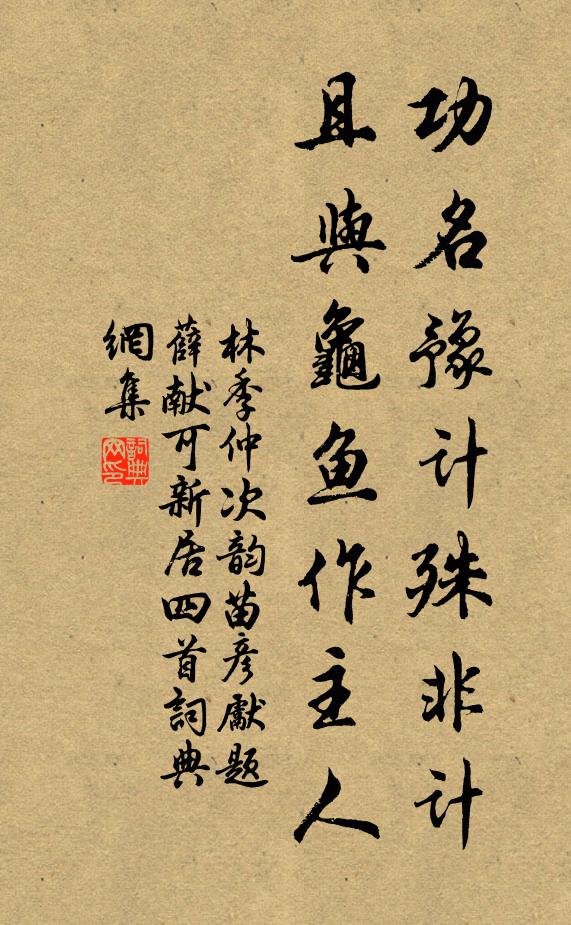 功名豫计殊非计
且與龜鱼作主人
林季仲次韵苗彦獻题
薛献可新居四首詞典
網集
詞典网印